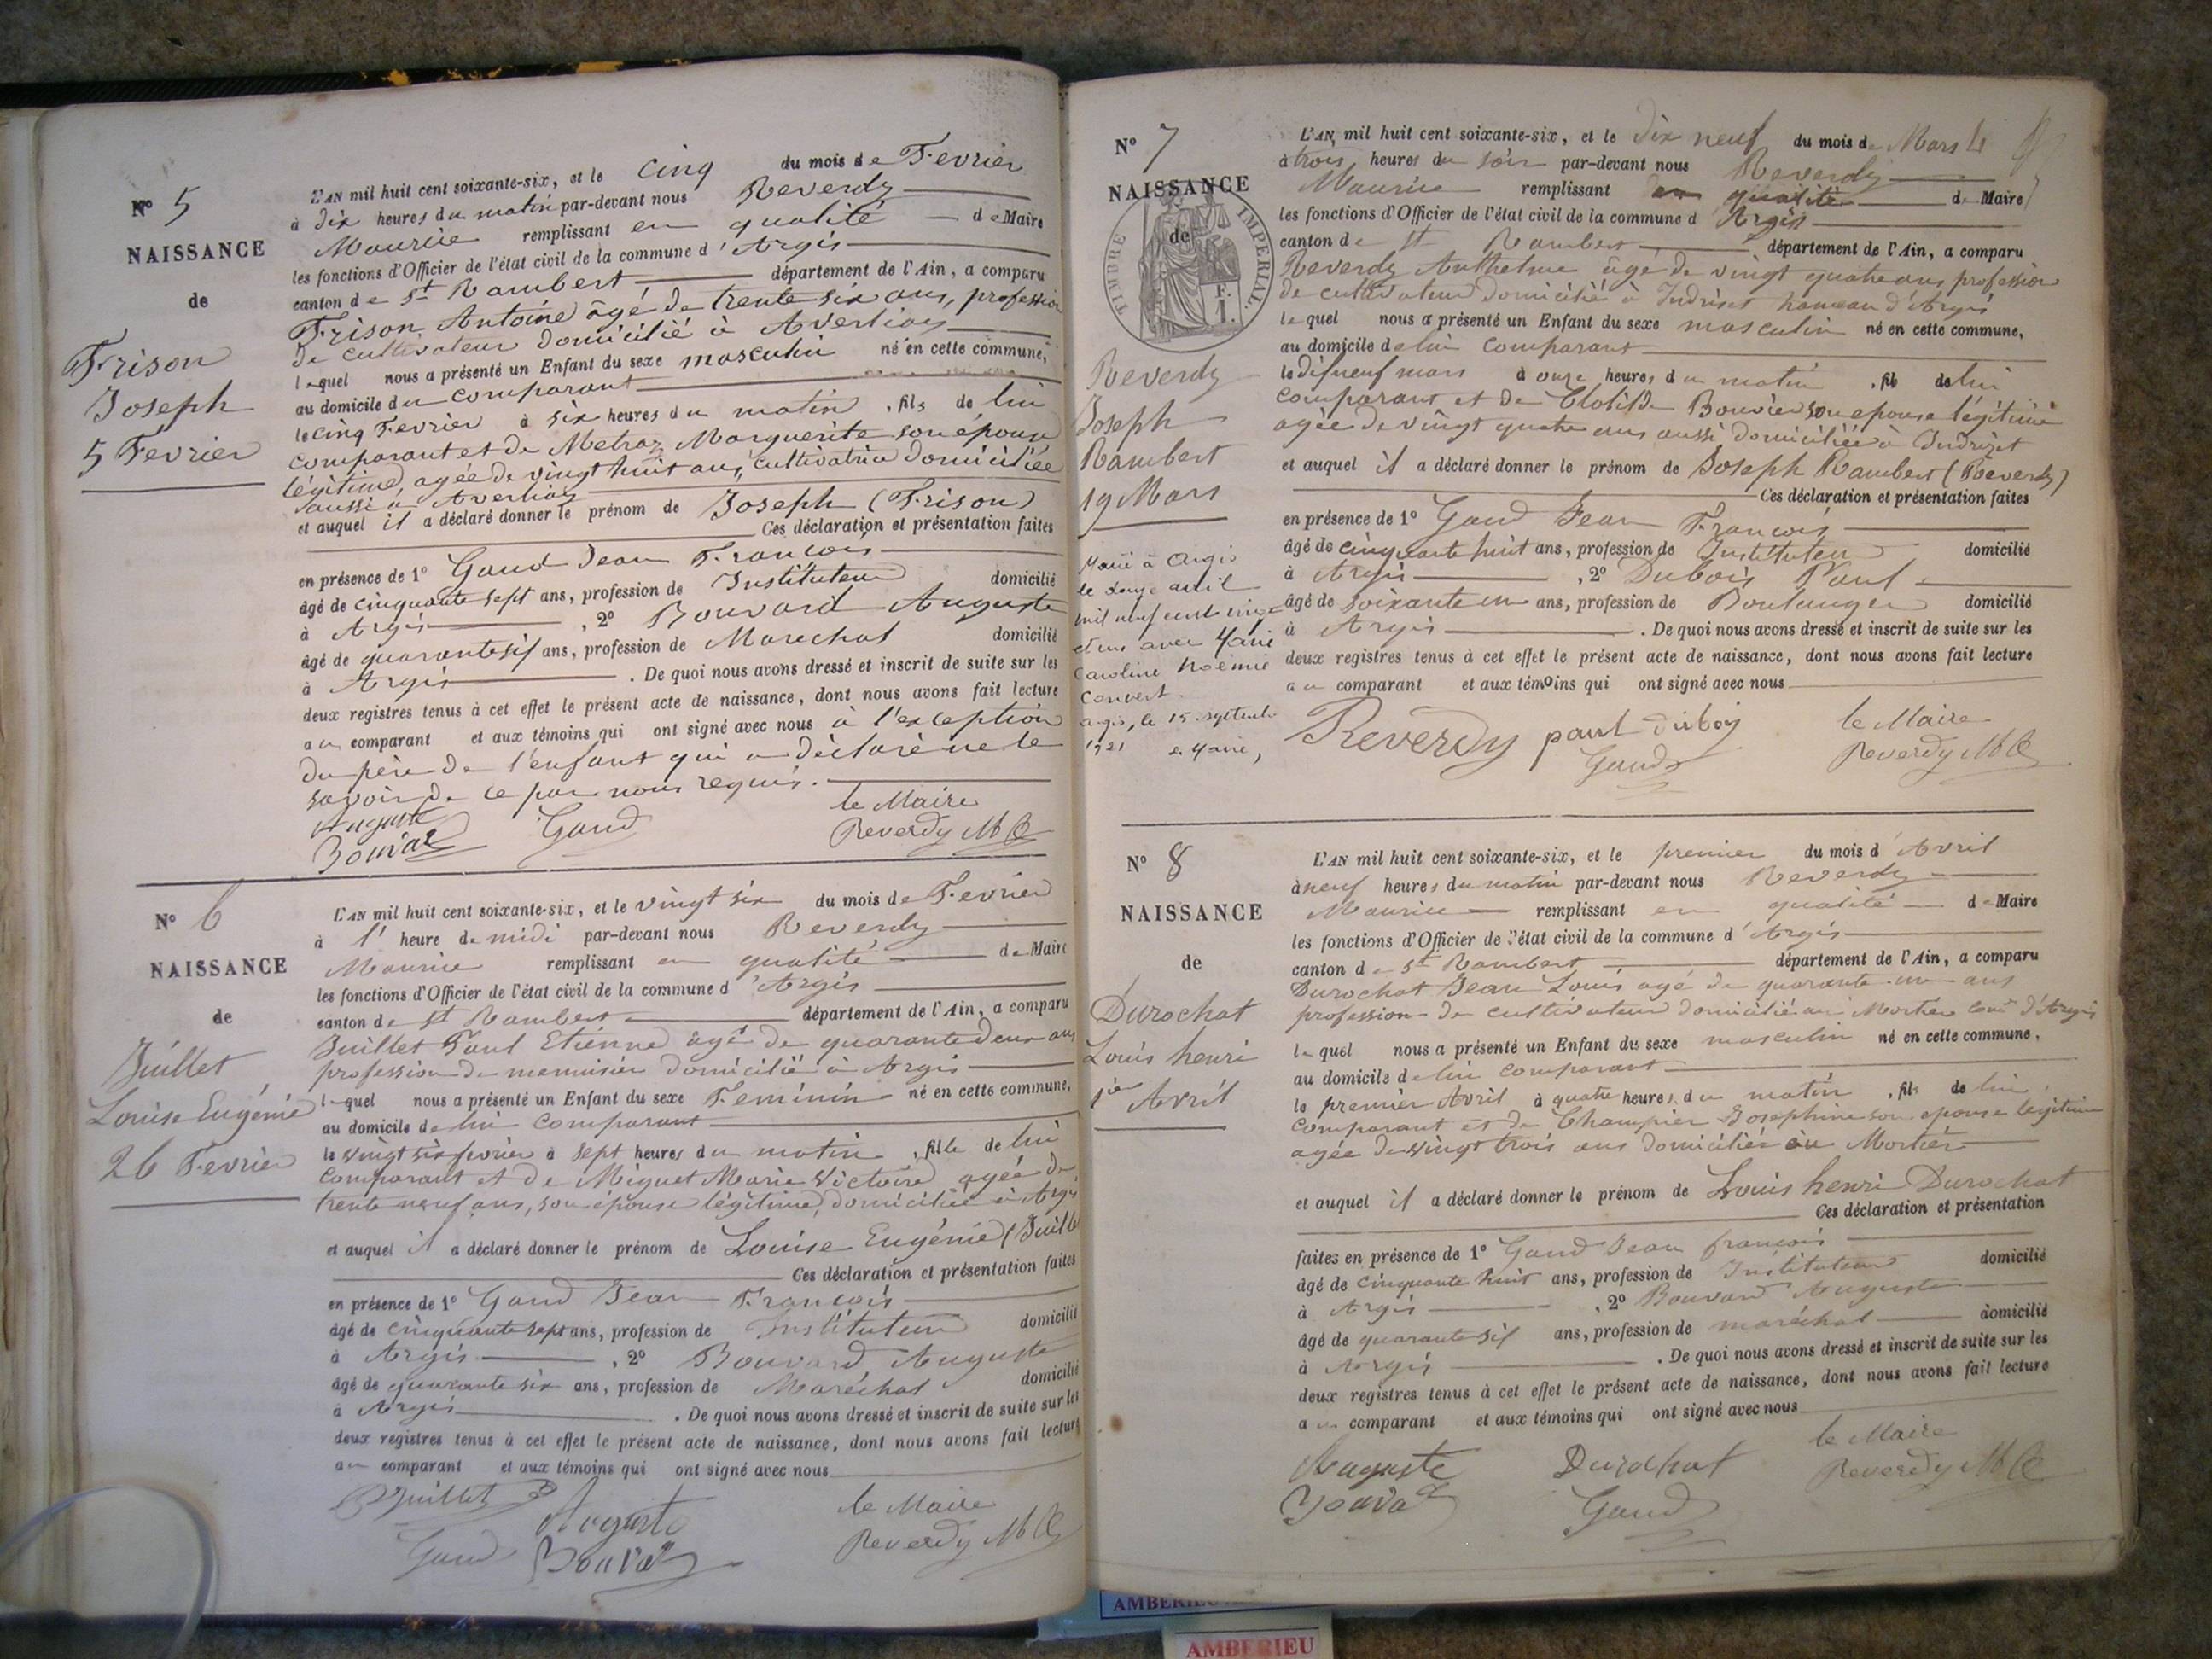 N° 5
NAISSANCE
de
Frison
Joseph
5 Fevrier
L'AN mil huit cent soixante-six, et le cinq du mois de Fevrier
à dix heures du matin par-devant nous Reverdy
Maurice remplissant en qualité de Maire
les fonctions d'Officier de l'état civil de la commune d'Argis
canton de St Rambert, département de l'Ain, a comparu
Frison Antoine âgé de trente six ans, profession
de cultivateur domicilié à Averliaz
lequel nous a présenté un Enfant du sexe masculin né en cette commune,
au domicile du comparant
le cinq Fevrier à six heures du matin, fils de lui
comparant et de Metraz Marguerite son épouse
légitime, agée de vingt huit ans, cultivatrice domiciliée
aussi à Averliaz
et auquel il a déclaré donner le prénom de Joseph (Frison)
Ces déclaration et présentation faites
en présence de 1° Gaud Jean François
âgé de cinquante sept ans, profession de Instituteur domicilié
à Argis, 2° Bouvard Auguste
âgé de quarante six ans, profession de Marechal domicilié
à Argis. De quoi nous avons dressé et inscrit de suite sur les
deux registres tenus à cet effet le présent acte de naissance, dont nous avons fait lecture
au comparant et aux témoins qui ont signé avec nous à l'exception
du père de l'enfant qui a déclaré ne le
savoir de ce par nous requis.
Auguste Bouvar Gaud le Maire
Reverdy M
N° 6
NAISSANCE
de
Juillet
Louise Eugénie
26 Fevrier
L'AN mil huit cent soixante-six, et le vingt six du mois de Fevrier
à l'heure de midi par-devant nous Reverdy
Maurice remplissant en qualité de Maire
les fonctions d'Officier de l'état civil de la commune d'Argis
canton de St Rambert département de l'Ain, a comparu
Juillet Paul Etienne âgé de quarante deux ans
profession de menuisier domicilié à Argis
lequel nous a présenté un Enfant du sexe Feminin né en cette commune,
au domicile de lui comparant
le vingt six fevrier à sept heures du matin, fille de lui
comparant et de Miguet Marie Victoire agée de
trente neuf ans, son épouse légitime, domiciliée à Argis
et auquel il a déclaré donner le prénom de Louise Eugénie (Juillet
Ces déclaration et présentation faites
en présence de 1° Gaud Jean François
âgé de cinquante sept ans, profession de Instituteur domicilié
à Argis, 2° Bouvard Auguste
âgé de quarante six ans, profession de Maréchal domicilié
à Argis. De quoi nous avons dressé et inscrit de suite sur les
deux registres tenus à cet effet le présent acte de naissance, dont nous avons fait lecture
au comparant et aux témoins qui ont signé avec nous
Juillet Auguste le Maire
Gaud Bouvar Reverdy M
N° 7
NAISSANCE
de
TIMBRE IMPERIAL
1 F.
Reverdy
Joseph
Rambert
19 Mars
Marié à Argis
le douze avril
mil neuf cent vingt
et un avec Marie
Caroline Noémie
Convert.
Argis, le 15 septembre
1921 le Maire,
L'AN mil huit cent soixante-six, et le dix neuf du mois de Mars
à trois heures du soir par-devant nous Reverdy
Maurice remplissant en qualité de Maire
les fonctions d'Officier de l'état civil de la commune d'Argis
canton de St Rambert département de l'Ain, a comparu
Reverdy Anthelme âgé de vingt quatre ans, profession
de cultivateur domicilié à Indriset hameau d'Argis
lequel nous a présenté un Enfant du sexe masculin né en cette commune,
au domicile de lui comparant
le dix neuf mars à onze heures du matin, fils de lui
comparant et de Clotilde Bouvier son epouse légitime
agée de vingt quatre ans aussi domiciliée à Indrizet
et auquel il a déclaré donner le prénom de Joseph Rambert (Reverdy)
Ces déclaration et présentation faites
en présence de 1° Gaud Jean François
âgé de cinquante huit ans, profession de Instituteur domicilié
à Argis, 2° Dubois Paul
âgé de soixante un ans, profession de Boulanger domicilié
à Argis. De quoi nous avons dressé et inscrit de suite sur les
deux registres tenus à cet effet le présent acte de naissance, dont nous avons fait lecture
au comparant et aux témoins qui ont signé avec nous
Reverdy paul duboy le Maire
Gaud Reverdy M
N° 8
NAISSANCE
de
Durochat
Louis henri
1er Avril
L'AN mil huit cent soixante-six, et le premier du mois d'Avril
à neuf heures du matin par-devant nous Reverdy
Maurice remplissant en qualité de Maire
les fonctions d'Officier de l'état civil de la commune d'Argis
canton de St Rambert département de l'Ain, a comparu
Durochat Jean Louis agé de quarante un ans
profession de cultivateur domicilié au Mortier com d'Argis
lequel nous a présenté un Enfant du sexe masculin né en cette commune,
au domicile de lui comparant
le premier Avril à quatre heures du matin, fils de lui
comparant et de Champier Josephine son epouse légitime
agée de vingt trois ans domiciliée au Mortier
et auquel il a déclaré donner le prénom de Louis henri Durochat
Ces déclaration et présentation
faites en présence de 1° Gaud Jean françois
âgé de cinquante huit ans, profession de Instituteur domicilié
à Argis, 2° Bouvard Auguste
âgé de quarante six ans, profession de maréchal domicilié
à Argis. De quoi nous avons dressé et inscrit de suite sur les
deux registres tenus à cet effet le présent acte de naissance, dont nous avons fait lecture
au comparant et aux témoins qui ont signé avec nous
Auguste Durochat le Maire
Bouvar Gaud Reverdy M
AMBERIEU
AMBERIEU